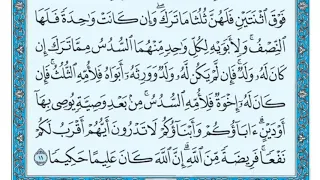 فَوۡقَ ٱثۡنَتَيۡنِ فَلَهُنَّ ثُلُثَا مَا تَرَكَۖ وَإِن كَانَتۡ وَٰحِدَةٗ فَلَهَا
ٱلنِّصۡفُۚ وَلِأَبَوَيۡهِ لِكُلِّ وَٰحِدٖ مِّنۡهُمَا ٱلسُّدُسُ مِمَّا تَرَكَ إِن
كَانَ لَهُۥ وَلَدٞۚ فَإِن لَّمۡ يَكُن لَّهُۥ وَلَدٞ وَوَرِثَهُۥٓ أَبَوَاهُ فَلِأُمِّهِ ٱلثُّلُثُۚ فَإِن
كَانَ لَهُۥٓ إِخۡوَةٞ فَلِأُمِّهِ ٱلسُّدُسُۚ مِنۢ بَعۡدِ وَصِيَّةٖ يُوصِي بِهَآ
أَوۡ دَيۡنٍۗ ءَابَآؤُكُمۡ وَأَبۡنَآؤُكُمۡ لَا تَدۡرُونَ أَيُّهُمۡ أَقۡرَبُ لَكُمۡ
نَفۡعٗاۚ فَرِيضَةٗ مِّنَ ٱللَّهِۗ إِنَّ ٱللَّهَ كَانَ عَلِيمًا حَكِيمٗا ١١